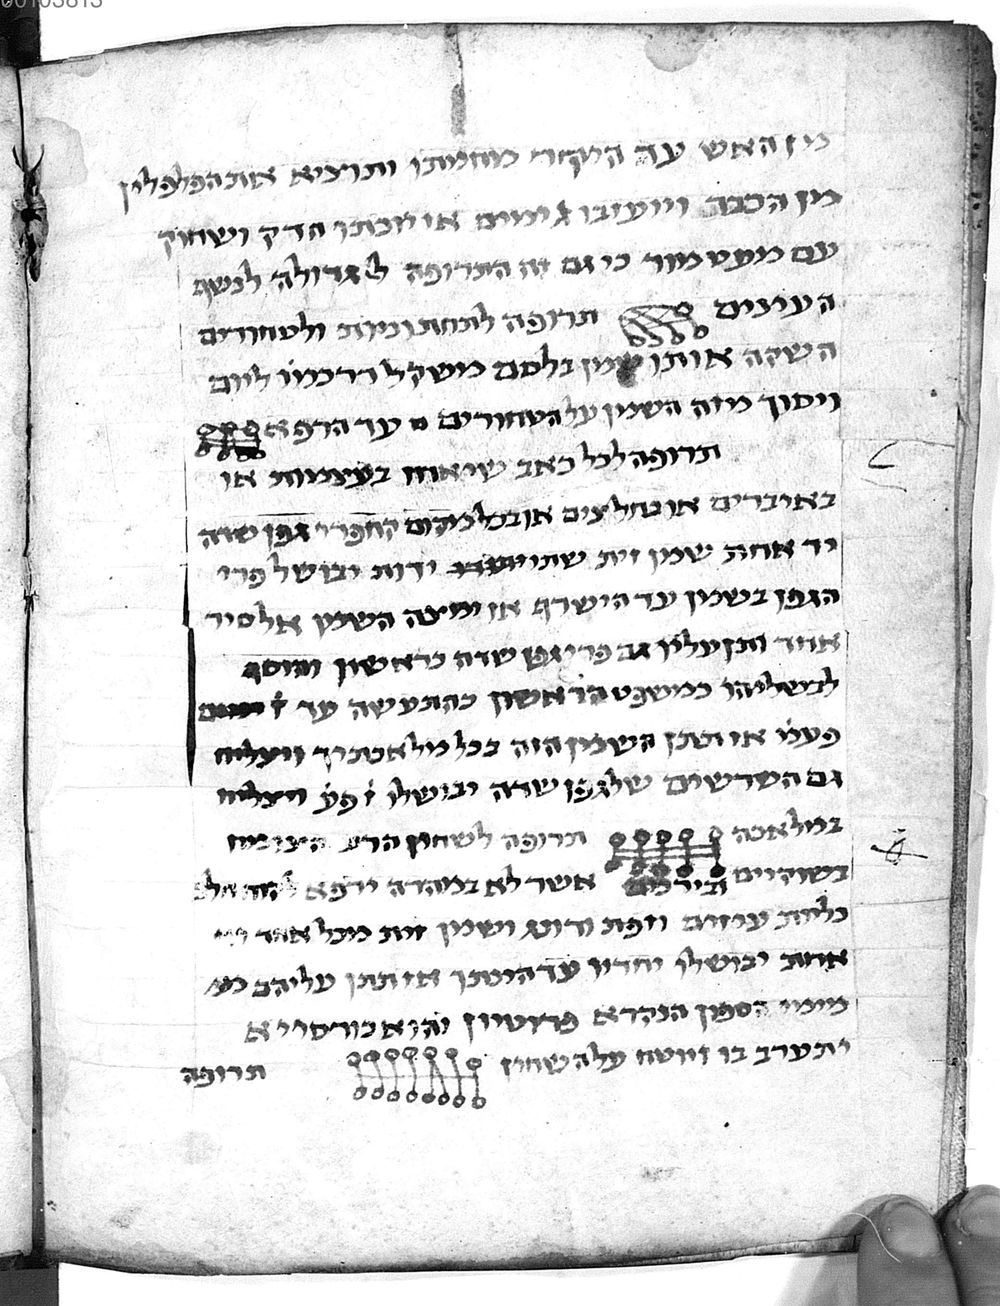 00103813
מן האש עד היקור מחמתו ותוציא את הפלפלין
מן הככה וייעיבו ג ימים או יוכתו הדק ושחוק
עם מעט מור כי גם זה התרופה לגדולה לנשף
העינים תרופה לתחתוניות ולטחורים
השקה אותו שמן בלסם משקל דרכמו ליום
ויסוך מזה השמן על הטחורים עד הרפא
תרופה לכל כאב שיאחז בעצמות או
באיברים או בחלצים או בכל מקום קח פרי גפן שדה
יד אחת שמן זית שתי ידות יבושל פרי
הגפן בשמן עד הישרף אז ימצה השמן אל סיר
אחד ותן עליו גם פרי גפן שדה כראשון ותוסף
לבשליהו כמשפט הראשון כהתעשה עד ז
פעמ אז ותתן השמן הזה בכל מלאכתיך ויצליח
גם השרשים של גפן שדה יבושלו ז פע ויצליח
במלאכה תרופה לשחין הרע היצומח
בשוקיים ובירכים אשר לא במהרה ירפא קח חלב
כליות עיזים וזפת ודונג ושמן זית מכל אחד
אחת יבושלו יחדיו עד היתכו אז תתן עליהם
מימי הספון הנקרא פרוטיון והוא בורסייא
יתערב בו זיוטח על השחין תרופה